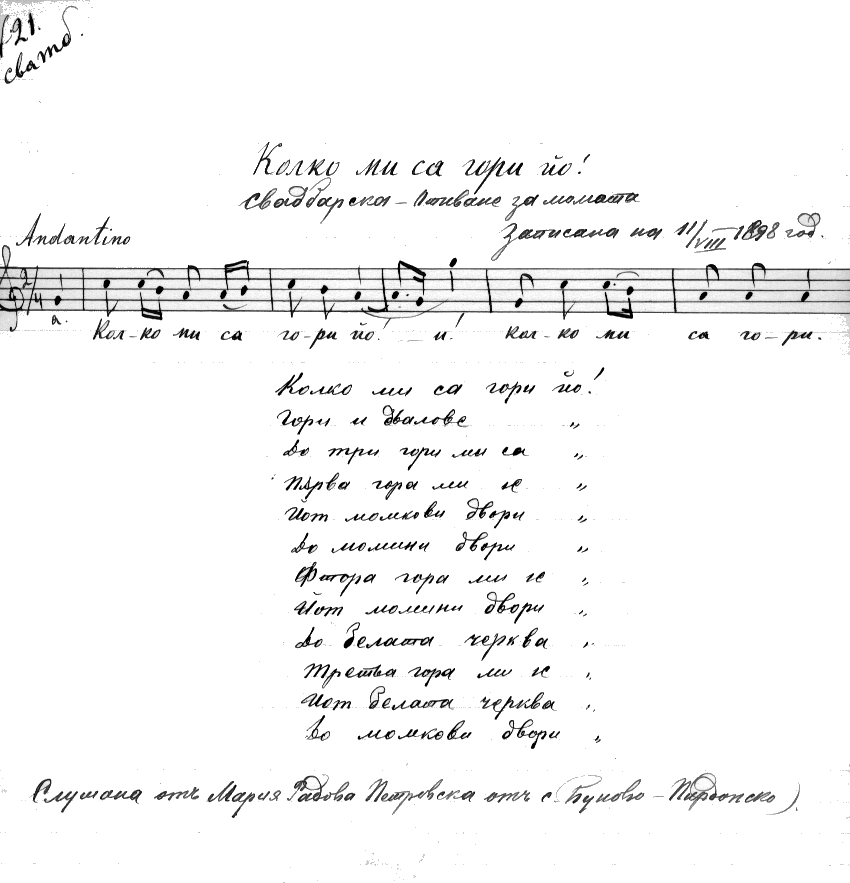 121.
сватб.
Колко ми са гори йо!
Свадбарска – Отиване за момата
Andantino
Записана на 11/VIII 1898 год.
2/4
а.
Кол-ко ми са го-ри йо! и! Кол-ко ми са го-ри.
Колко ми са гори йо!
Гори и двалове „
До три гори ми са „
Първа гора ми је „
Йот момкови двори „
До момини двори „
Фтора гора ми је „
Йот момини двори „
До белата черква „
Третьа гора ми је „
Йот белата черква „
До момкови двори „
Слушана отъ Мария Радова Петревска отъ с. Буново – Пирдопско).